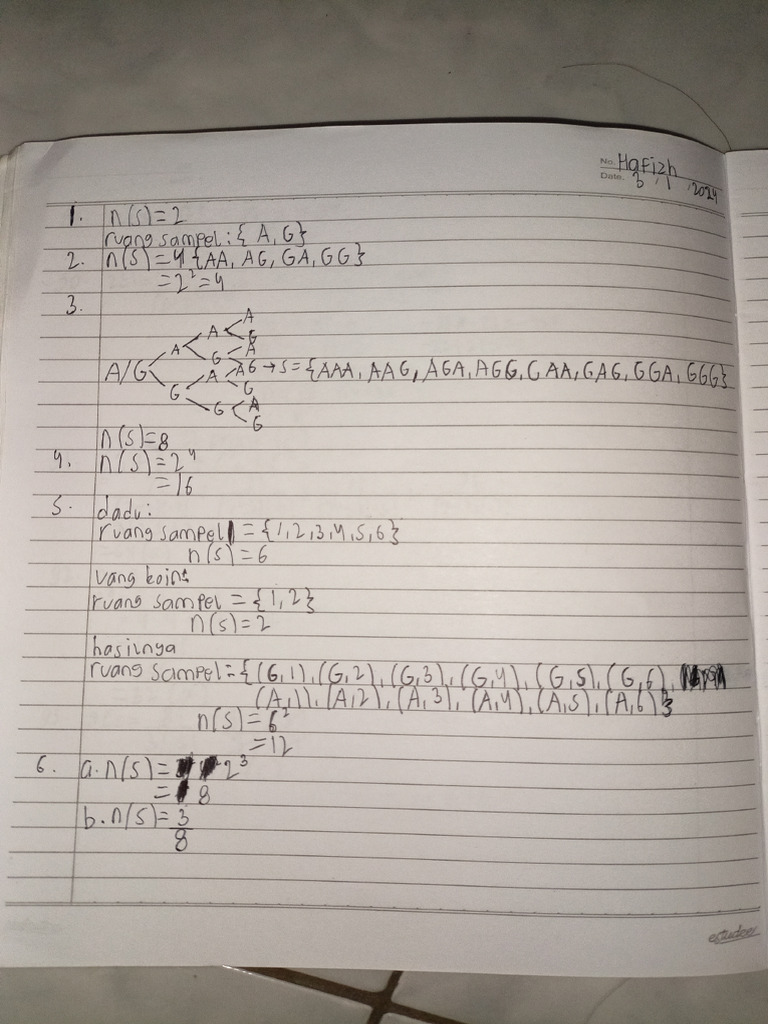 No. Hafizh
Date. 3 / 1 / 2024
1. n(s) = 2
ruang sampel : { A, G}
2. n(s) = 4 {AA, AG, GA, GG}
= 2² = 4
3.
A
A
G
A
G
A
G
A/G
A
A
G
G
G
A
G
→ s = {AAA, AAG, AGA, AGG, GAA, GAG, GGA, GGG}
n(s) = 8
4. n(s) = 2⁴
= 16
5. dadu:
ruang sampel = {1,2,3,4,5,6}
n(s) = 6
uang koin:
ruang sampel = {1,2}
n(s) = 2
hasilnya
ruang sampel = {(G,1), (G,2), (G,3), (G,4), (G,5), (G,6),
(A,1), (A,2), (A,3), (A,4), (A,5), (A,6)}
n(s) = 6²
= 12
6. a. n(s) = 2³
= 8
b. n(s) = 3
8
estudee